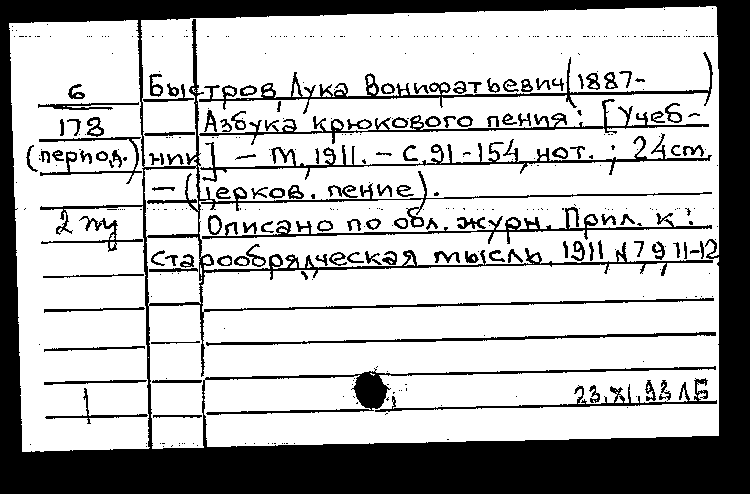 6 Быстров, Лука Вонифатьевич (1887- )
178 Азбука крюкового пения: [Учеб-
(период.) ник] - М., 1911. - С. 91-154, нот. ; 24 см.
- (церков. пение).
Описано по обл. журн. Прил. к:
старообрядческая мысль, 1911, N 7, 9, 11-12
23.XI.93 ЛБ